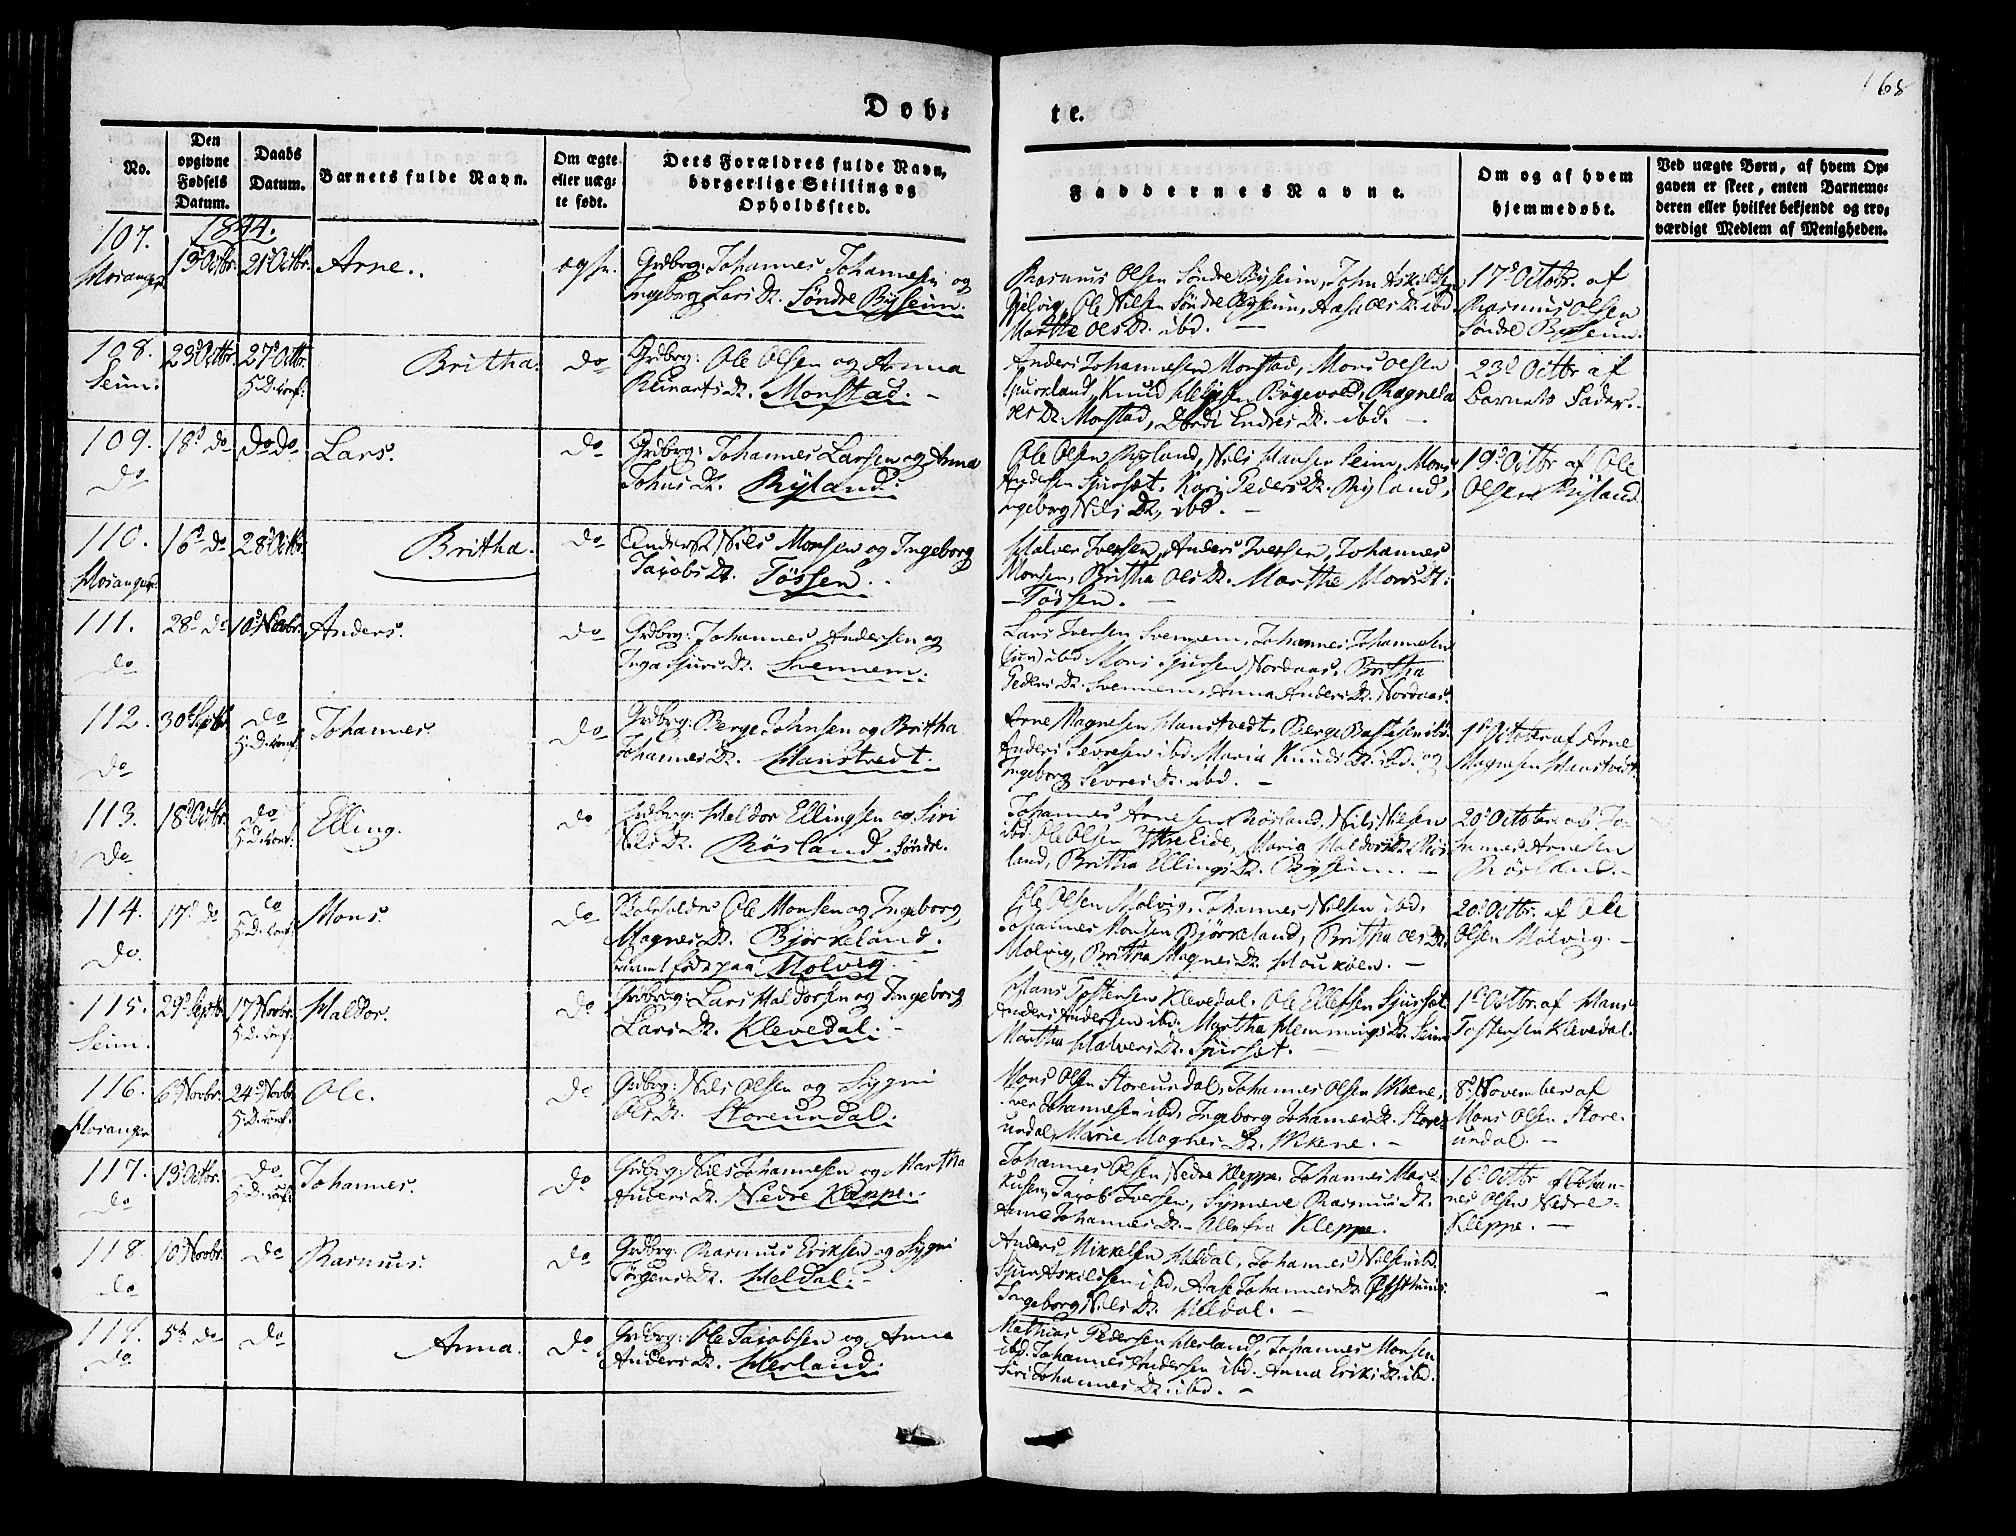 168
Døb-
te.
No.
Den
opgivne
Fødsels
Datum.
Daabs
Datum.
Barnets fulde Navn.
Om ægte
eller uæg-
te født.
Dets Forældres fulde Navn,
borgerlige Stilling og
Opholdssted.
Faddernes Navne.
Om og af hvem
hjemmedøbt.
Ved uægte Børn, af hvem Op-
gaven er skeet, enten Barnemo-
deren eller hvilket bekjendt og tro-
værdigt Medlem af Menigheden.
1844.
107.
Hosanger
21 Octbr.
Arne.
Grdbrg: Johannes Johannesen og
Ingeborg Lars Dr. Søndre Byseim.
Rasmus Olsen Søndre Byseim, John Askildsen
Ole Nilsen Søndre Byseim, Aasa Ols Dr. ibd.
Marthe Ols Dr. ibd.
17d Octbr. af
Rasmus Olsen
Søndre Byseim.
108.
Seim.
23d Octbr.
27d Octbr.
H. D. conf:
Britha.
do
Grdbrg: Ole Olsen og Anna
Dr. Monstad.
Anders Johannesen Monstad, Mons Olsen
Spurkland, Knud Bøgevold, Ragnela
Ols Dr. Monstad, Endres Dr. ibd.
23d Octbr af
Barnets Fader.
109.
do
18d do
do do
Lars.
do
Grdbrg: Johannes Larsen og Anna
Johns Dr. Ryland.
Ole Olsen Ryland, Nils Hansen Seim, Mons
Andersen Sjurset, Kari Peders Dr. Ryland,
Ingeborg Nils Dr. ibd.
19d Octbr af Ole
Olsen Ryland.
110.
Hosanger
16d do
28d Octbr.
Britha.
do
Nils Monsen og Ingeborg
Jacobs Dr. Tøssen.
Halver Iversen, Anders Iversen, Johannes
Monsen, Britha Ols Dr. Marthe Mons Dr.
Tøssen.
111.
do
28d do
10d Novbr.
Anders.
do
Grdbrg: Johannes Andersen og
Inga Sjurs Dr. Svennem.
Lars Iversen Svennem, Johannes Johannesen
ibd Mons Sjursen Nordaas, Britha
Peders Dr. Svennem, Anna Anders Dr. Nordaas.
112.
do
30d Septbr.
do
H. D. conf:
Johannes.
do
Grdbrg: Berge Johnsen og Britha
Johannes Dr. Hanstvedt.
Arne Magnesen Hanstvedt, Berge
Anders Sevresen ibd. Maria Knuds Dr. ibd. og
Ingeborg Sevres Dr. ibd.
1d October af Arne
Magnesen Hanstvedt.
113.
do
18d Octbr.
do
H. D. conf:
Elling.
do
Grdbrg: Haldor Ellingsen og Siri
Nils Dr. Røsland Søndre.
Johannes Arnesen Røsland, Nils Nilsen
ibd. Ole Olsen Ytre Eide, Maria Haldors Dr. Røs-
land, Britha Ellings Dr. Byseim.
20d Octbr. af Jo-
hannes Arnesen
Røsland.
114.
do
17d do
do
H. D. conf:
Mons
do
Ole Monsen og Ingeborg
Magnes Dr. Bjørkeland.
født paa Molvig
Ole Olsen Molvig, Johannes Nilsen ibd.
Johannes Monsen Bjørkeland, Britha Ols Dr.
Molvig, Britha Magnes Dr. Houkøen.
20d Octbr. af Ole
Olsen Molvig.
115.
Seim.
29d Septbr.
17 Novbr.
H. D. conf.
Haldor.
do
Grdbrg: Lars Haldorsen og Ingeborg
Lars Dr. Klevedal.
Hans Tostensen Klevedal, Ole Ellefsen Sjurset
Anders Andersen ibd. Martha Hemmings Dr. Seim
Martha Halvers Dr. Sjurset.
1d Octbr. af Hans
Tostensen Klevedal.
116.
Hosanger
6 Novbr.
24d Novbr.
H. D. conf.
Ole.
do
Grdbrg: Nils Olsen og Sygni
Ols Dr. Storeundal.
Mons Olsen Storeundal, Johannes Olsen Wikene,
Iver Johannesen ibd, Ingeborg Johannes Dr. Store-
undal, Marie Magnes Dr. Wikene.
8d November af
Mons Olsen Store-
undal.
117.
do
13 Octbr.
do
Johannes.
do
Grdbrg: Nils Johannesen og Martha
Anders Dr. Nedre Kleppe.
Johannes Olsen Nedre Kleppe, Johannes Mar-
kusen, Jacob Iversen, Synneve Rasmus Dr.
Anne Johannes Dr. Alle fra Kleppe.
16d Octbr af Johan-
nes Olsen Nedre
Kleppe.
118.
do
10 Novbr.
do
Rasmus.
do
Grdbrg: Rasmus Eriksen og Sygni
Jørgens Dr. Heldal.
Anders Mikkelsen Heldal, Johannes Nilsen ibd.
Sjur Askildsen ibd, Aase Johannes Dr.
Ingeborg Nils Dr. Heldal.
119.
do
5te do
do
Anna.
do
Grdbrg: Ole Jacobsen og Anna
Anders Dr. Herland.
Mathias Pedersen Herland, Johannes Monsen
ibd. Johannes Andersen ibd. Anna Eriks Dr. ibd.
Siri Johannes Dr. ibd.